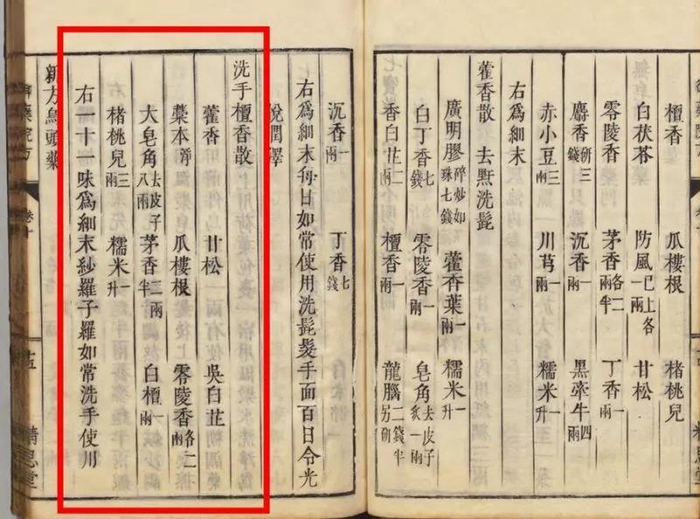 檀香 瓜樓根 楮桃兒
白茯苓 防風已上各一兩 甘松
零陵香 茅香各二兩半 丁香一兩
麝香研三錢 沉香一兩 黑牽牛四兩
赤小豆三兩 川芎一兩 糯米一升
右爲細末
藿香散 去䵟洗髭
廣明膠碎炒如珠七錢 藿香葉一兩 糯米一升
白丁香七錢 零陵香一兩 皂角去皮子炙一兩
香白芷二兩 檀香一兩 龍腦二錢半另研
沉香一兩 丁香七錢
右爲細末每日如常使用洗髭髮手面百日令光
悅潤澤
洗手檀香散
藿香 甘松 吳白芷
藁本净 瓜樓根 零陵香各二兩
大皂角去皮子八兩 茅香二兩 白檀一兩
楮桃兒三兩 糯米一升
右一十一味爲細末紗羅子羅如常洗手使用
新方烏頭藥
御藥院方 卷十 十五 精思堂